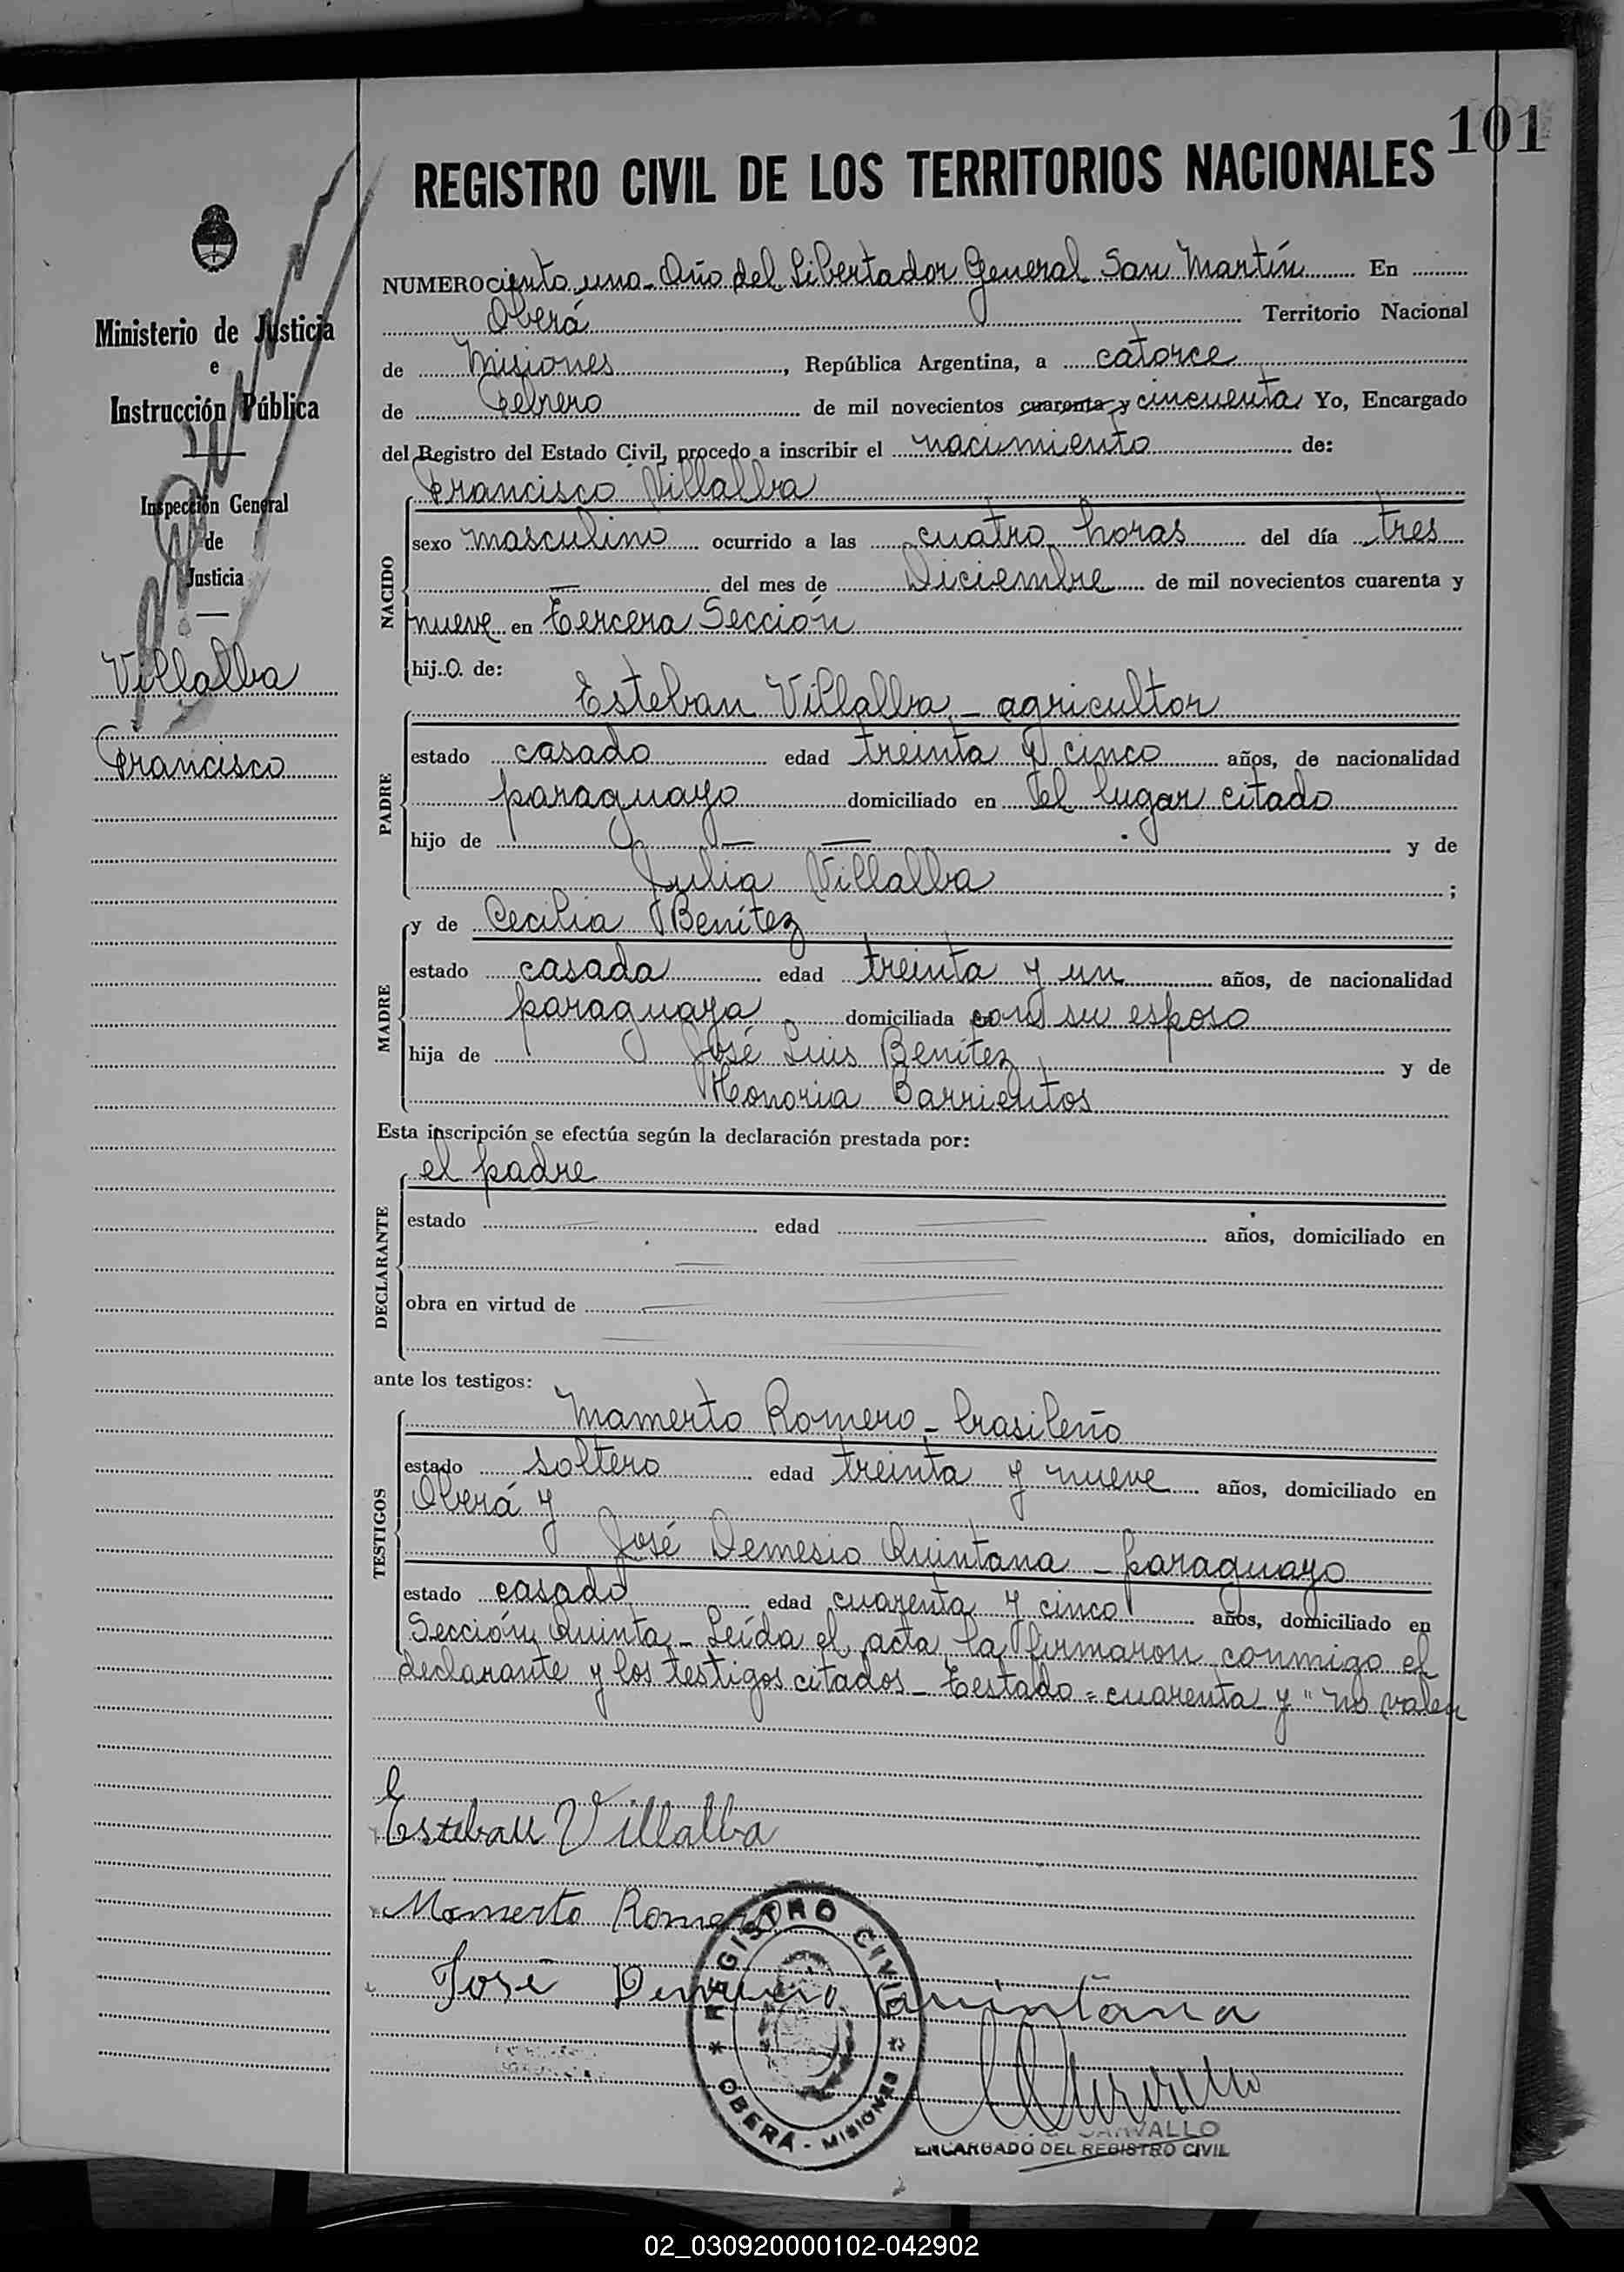 101
REGISTRO CIVIL DE LOS TERRITORIOS NACIONALES
Ministerio de Justicia
e
Instrucción Pública
Inspección General
de
Justicia
Villalba
Francisco
NUMERO ciento uno - Año del Libertador General San Martín En
Oberá Territorio Nacional
de Misiones, República Argentina, a catorce
de Febrero de mil novecientos cuarenta y cincuenta Yo, Encargado
del Registro del Estado Civil, procedo a inscribir el nacimiento de:
Francisco Villalba
NACIDO
sexo masculino ocurrido a las cuatro horas del día tres
— del mes de Diciembre de mil novecientos cuarenta y
nueve en Tercera Sección
hijo de:
PADRE
Esteban Villalba - agricultor
estado casado edad treinta y cinco años, de nacionalidad
paraguayo domiciliado en el lugar citado
hijo de — — y de
Julia Villalba ;
MADRE
y de Cecilia Benítez
estado casada edad treinta y un años, de nacionalidad
paraguaya domiciliada con su esposo
hija de José Luis Benítez y de
Honoria Barrientos
Esta inscripción se efectúa según la declaración prestada por:
DECLARANTE
el padre
estado — edad — años, domiciliado en
obra en virtud de —
ante los testigos:
TESTIGOS
Mamerto Romero - brasileño
estado soltero edad treinta y nueve años, domiciliado en
Oberá y
José Demesio Quintana - paraguayo
estado casado edad cuarenta y cinco años, domiciliado en
Sección Quinta - Leída el acta, la firmaron conmigo el
declarante y los testigos citados - Testado = cuarenta y " no valen
Esteban Villalba
Mamerto Romero
José Demesio Quintana
REGISTRO CIVIL
OBERÁ - MISIONES
ENCARGADO DEL REGISTRO CIVIL
02_030920000102-042902